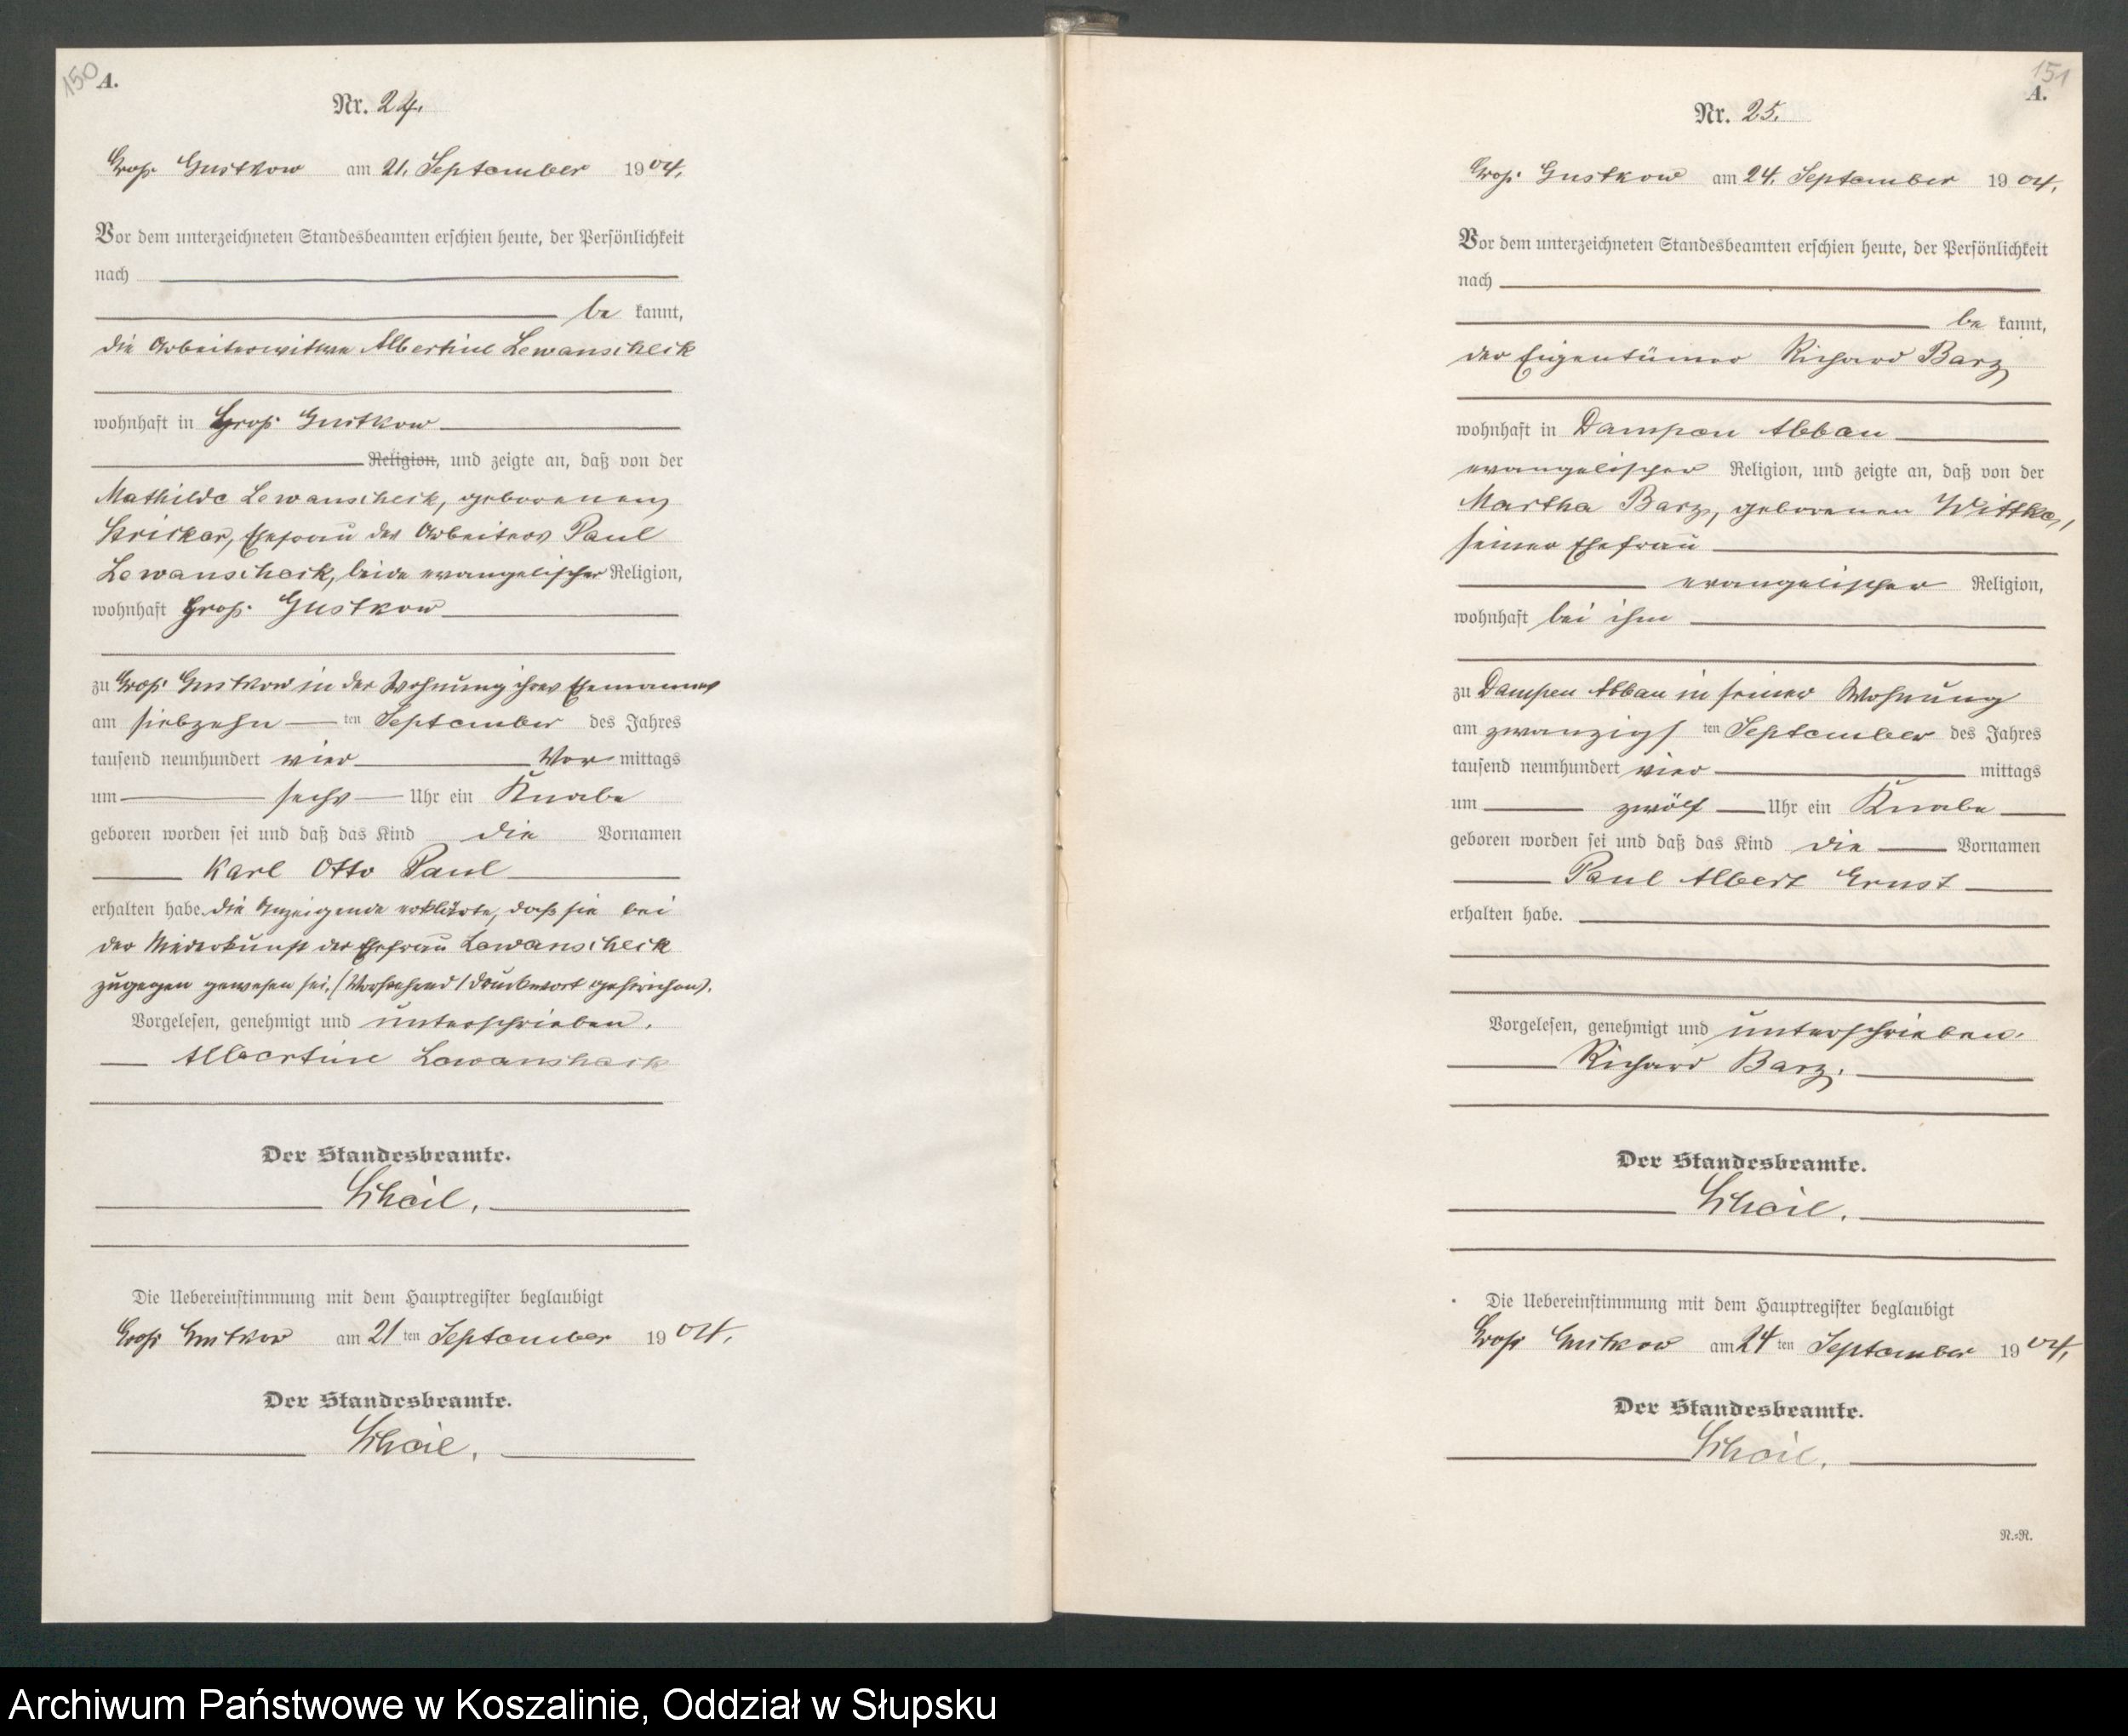 150
A.
Nr. 24.
Groß Gustkow am 21. September 1904.
Vor dem unterzeichneten Standesbeamten erschien heute, der Persönlichkeit
nach
be kannt,
die Arbeiterwitwe Albertine Lewanscheck
wohnhaft in Groß Gustkow
Religion, und zeigte an, daß von der
Mathilde Lewanscheck, geborenen
Ehefrau des Arbeiters Paul
Lewanscheck, beide evangelischer Religion,
wohnhaft Groß Gustkow
zu Groß Gustkow in der Wohnung ihres Ehemannes
am siebzehn ten September des Jahres
tausend neunhundert vier Vor mittags
um sechs Uhr ein Knabe
geboren worden sei und daß das Kind die Vornamen
Karl Otto Paul
erhalten habe. Die Anzeigende erklärte, daß sie bei
der Niederkunft der Ehefrau Lewanscheck
zugegen gewesen sei. (Vorstehend 1 Druckwort gestrichen).
Vorgelesen, genehmigt und unterschrieben.
Albertine Lewanscheck
Der Standesbeamte.
Scheil.
Die Uebereinstimmung mit dem Hauptregister beglaubigt
Groß Gustkow am 21 ten September 1904.
Der Standesbeamte.
Scheil.
151
A.
Nr. 25.
Groß Gustkow am 24. September 1904.
Vor dem unterzeichneten Standesbeamten erschien heute, der Persönlichkeit
nach
be kannt,
der Eigentümer Richard Barz
wohnhaft in Dampen Abbau
evangelischer Religion, und zeigte an, daß von der
Martha Barz, geborenen Wittke,
seiner Ehefrau
evangelischer Religion,
wohnhaft bei ihm
zu Dampen Abbau in seiner Wohnung
am zwanzigs ten September des Jahres
tausend neunhundert vier mittags
um zwölf Uhr ein Knabe
geboren worden sei und daß das Kind die Vornamen
Paul Albert Ernst
erhalten habe.
Vorgelesen, genehmigt und unterschrieben.
Richard Barz.
Der Standesbeamte.
Scheil.
Die Uebereinstimmung mit dem Hauptregister beglaubigt
Groß Gustkow am 24 ten September 1904.
Der Standesbeamte.
Scheil.
N.=R.
Archiwum Państwowe w Koszalinie, Oddział w Słupsku